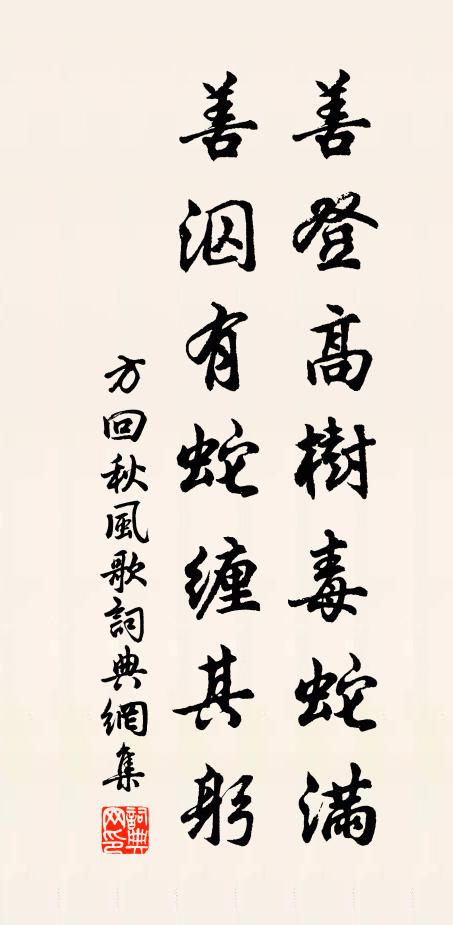 善登高樹毒蛇滿
善泅有蛇纏其躬
方回秋風歌詞典網集
詞典網印